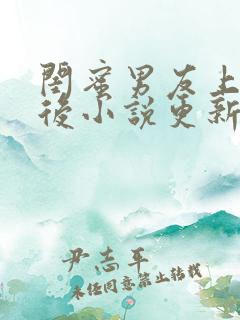 閨蜜男友上
後小説更新
尹志平
未經同意禁止轉載